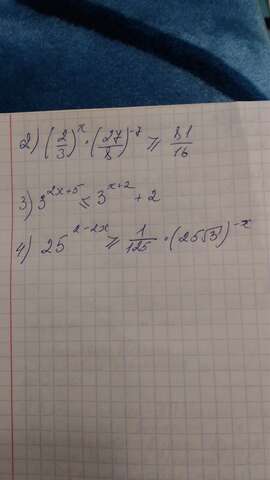 2) (2/3)^x · (27/8)^-7 ≥ 81/16
3) 3^(2x+5) ≤ 3^(x+2) + 2
4) 25^(2-2x) ≥ 1/125 · (25√3)^-x